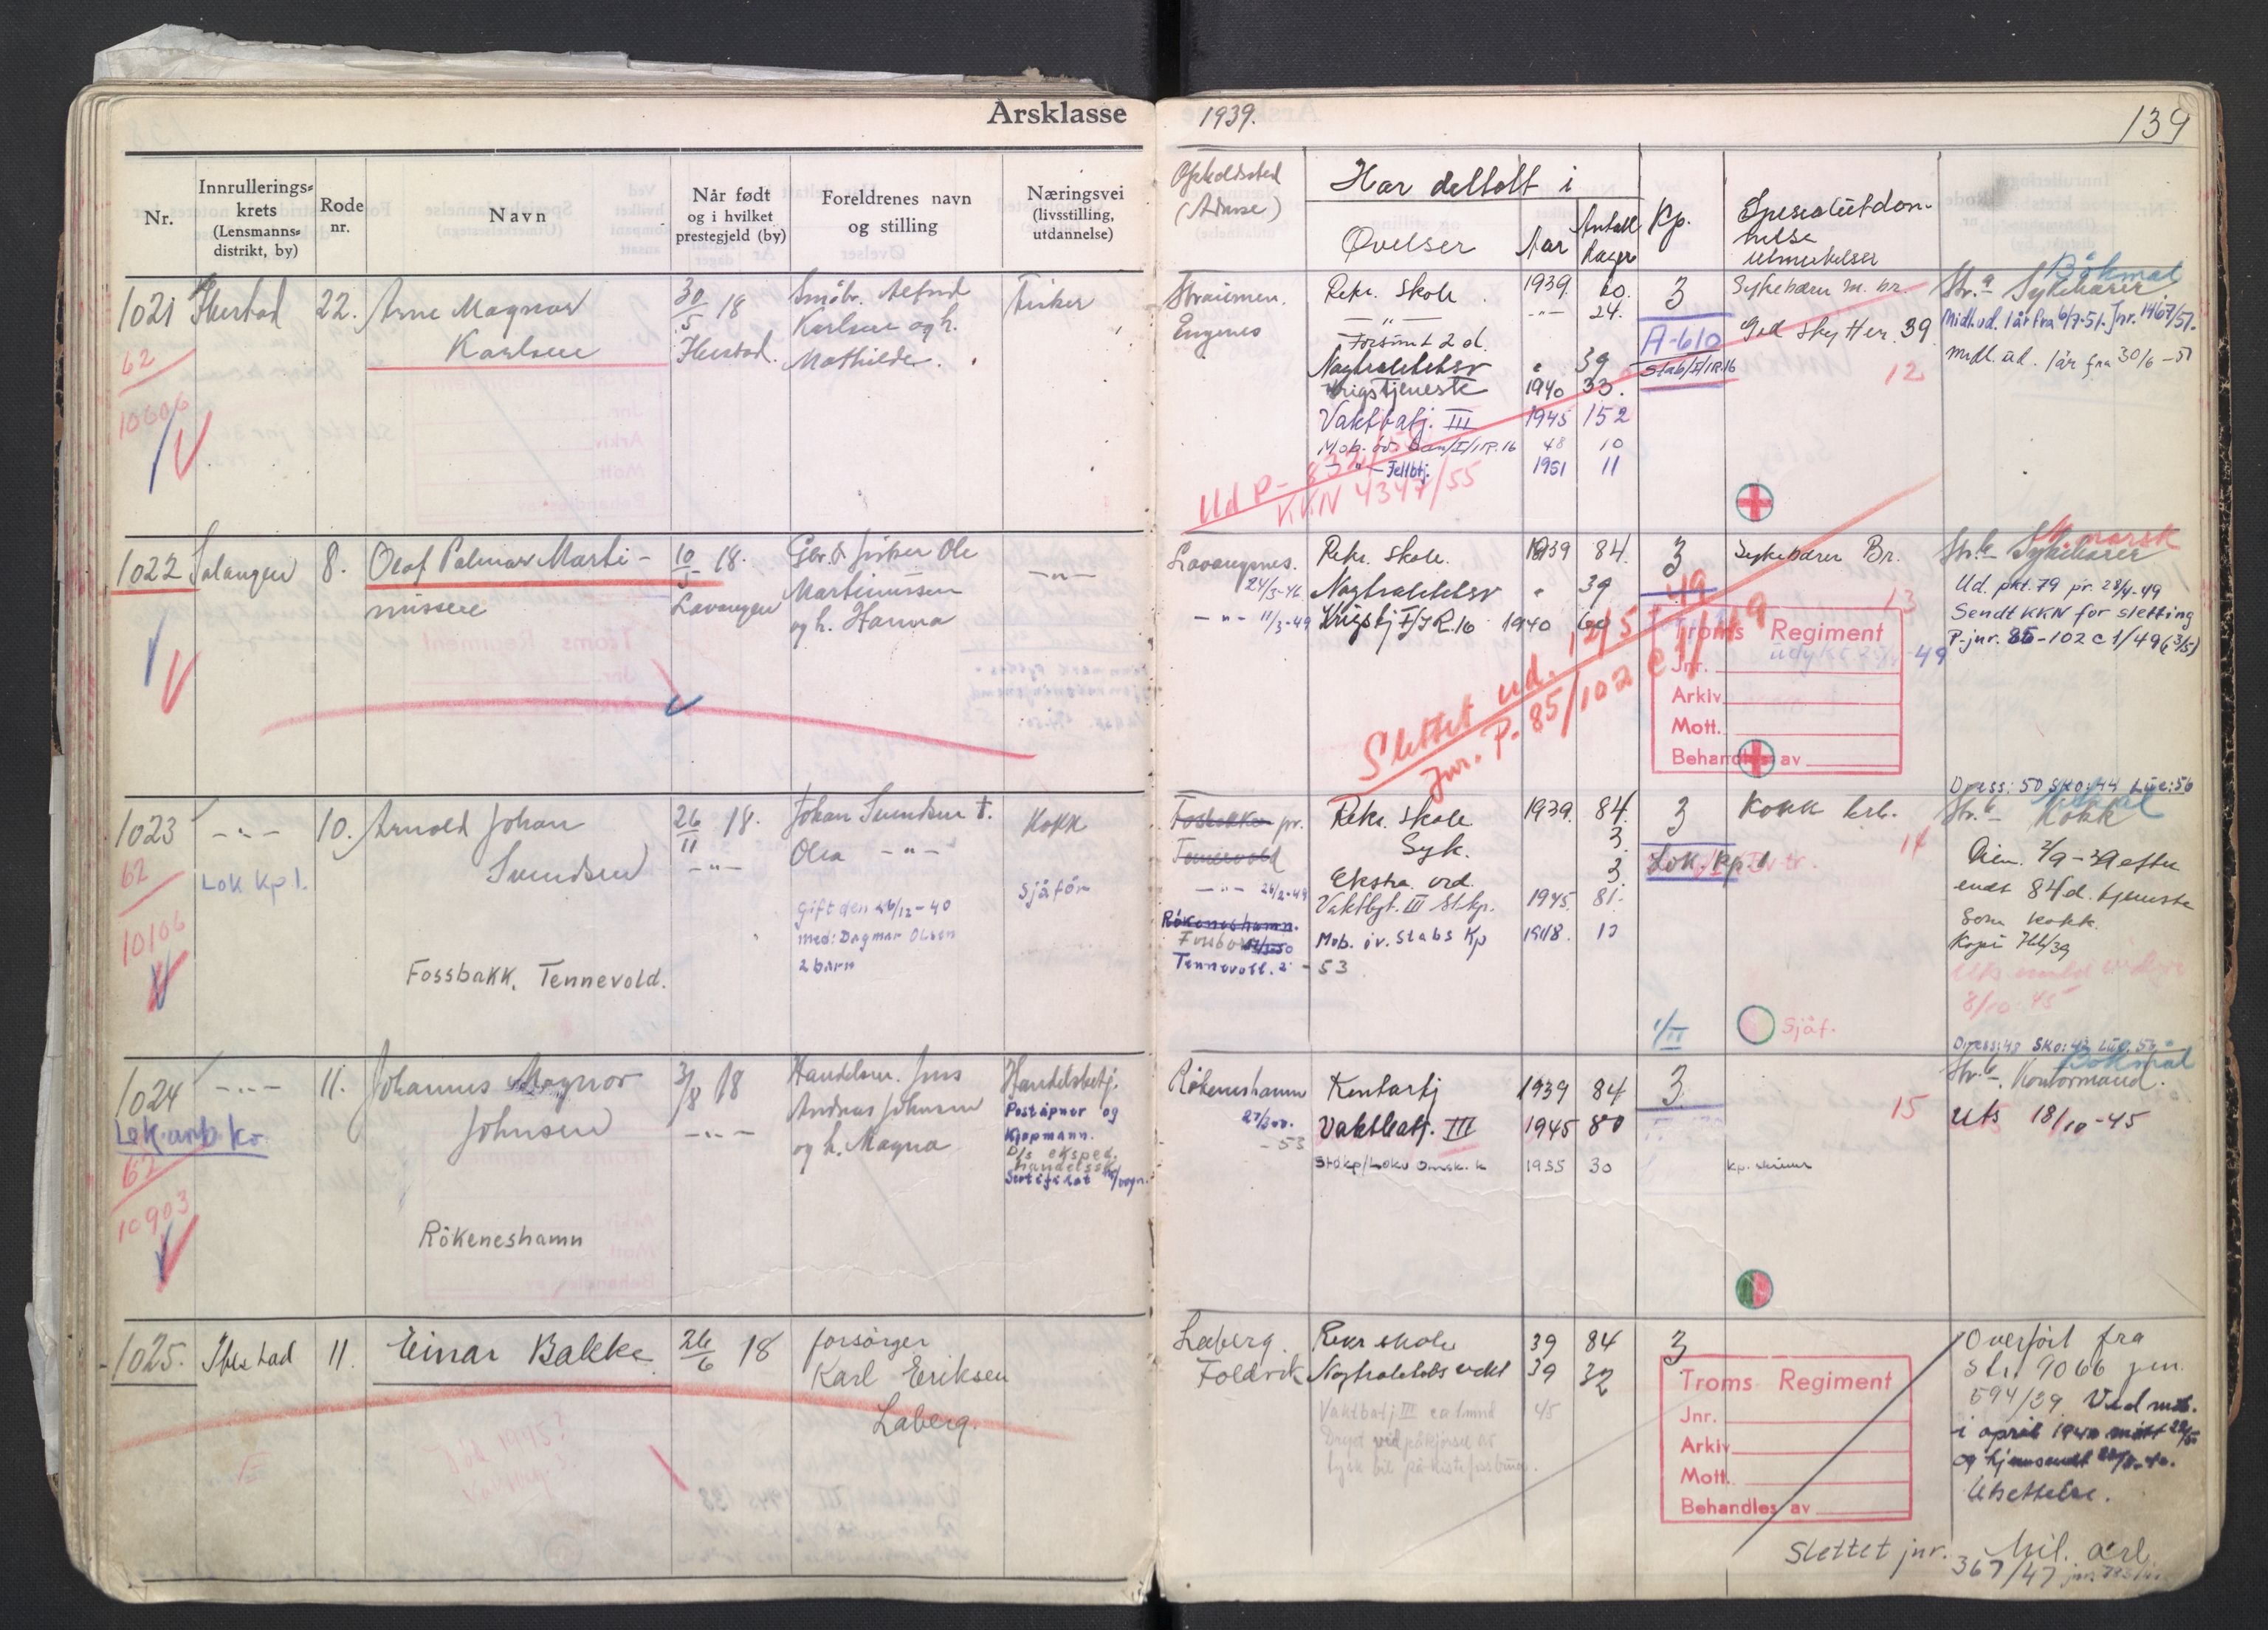 Årsklasse 1939. 139
Nr.
Innrullerings=
krets
(Lensmanns=
distrikt, by)
Rode
nr.
Navn
Når født
og i hvilket
prestegjeld (by)
Foreldrenes navn
og stilling
Næringsvei
(livsstilling,
utdannelse)
Opholdssted
(Adresse)
Har deltatt i
Øvelser
Aar
Antall
dager
Kp.
Spesialutdan-
nelse
utmerkelser
1021 Ibestad 22. Arne Magnar
Karlsen
30/5 18
Ibestad.
Småbr. Alfred
Karlsen og h.
Mathilde.
Fisker
62
10606
Straumen.
Engenes
Rekr. Skole 1939 60.
— " — 24.
Forsømt 2 d.
Nøytralitetsv " 39
Krigstjeneste 1940 33.
Vaktbatj. III 1945 152
Mob. øv. San/I/IR.16 48 10
— " — Feltbtj. 1951 11
Ud P-832/
KKN 4347/55
3
A-610
Stab/I/IR.16
Sykebærer m. br.
God skytter. 39
12
Bokmål
Str. a Sykebærer
Midl.ud. 1 år fra 6/7-51. Jnr. 1467/51.
Midl. ud. 1 år fra 30/6-51
1022 Salangen 8. Olaf Palmar Marti-
nussen
10/5 18.
Lavangen
Gbr. & fisker Ole
Martinussen
og h. Hanna
— " —
Lavangsnes.
24/3-46
— " — 11/3-49
Rekr. skole. 1939 84.
Nøytralitetsv " 39
Krigstj I/IR.16 1940 60
Slettet ud. 12/5-49
Jnr. P. 85/102 C 1/49
3
Sykebærer Br.
13
Troms Regiment
Jnr.
Arkiv
Mott.
Behandles av
Str. b Sykebærer
Ud. pkt. 79 pr. 28/4-49
Sendt KKN for sletting
P-jnr. 85-102 C 1/49 (3/5)
1023 — " — 10. Arnold Johan
Svendsen
26/11 18.
— " —
Johan Svendsen †.
Olea — " —
Kokk
Sjåfør
62
Lok Kp 1.
10106
Gift den 26/12-40
med: Dagmar Olsen
2 barn
Fossbakk, Tennevold.
Fossbakken pr.
Tennevold
— " — 26/2-49
Røkeneshamn.
Tennevoll. 2 - 53
Rekr. skole 1939. 84.
Syk. 3.
Ekstra ord. 3.
Vaktbgt. III St.kp. 1945. 81.
Mob. øv. Stabs Kp 1948. 13
3
Lok. Kp. 1
Kokk krb.
14
1/II
Sjåf.
Dress: 50 Sko: 44 Lue: 56
Str. b Kokk
Dim. 2/9-39 efter
endt 84 d. tjeneste
Som kokk.
Kopi 766/39
8/10-45
1024 — " — 11. Johannes Magnor
Johnsen
3/8 18
— " —
Handelsm. Jens
Andreas Johnsen
og h. Magna
Handelsbetj.
Poståpner og
Kjøpmann.
D/s eksped.
Handelssk.
Lok.arb.ko.
62
10903
Røkeneshamn
Røkeneshamn
27/
- 53
Kentartj 1939 84
Vaktbatj. III 1945 80
Stdkp/Lokv Omsk. k 1955 30
3
Kp. skriver
15
Dress: 48 Sko: 43 Lue: 53
Bokmål
Str. b Kontormand.
Uts 18/10-45
1025. Ibestad 11 Einar Bakke
26/6 18
forsørger
Karl Eriksen
Laberg.
Laberg.
Foldvik
Rekr skole 39 84
Nøytralitets vakt 39 32
Vaktbatj III ca 1 mnd 45
Drept ved påkjørsel av
tysk bil
3
Troms Regiment
Jnr.
Arkiv
Mott.
Behandles av
Overført fra
Str. 9066 jnr.
594/39. Ved mob.
i april 1940 møtt
og hjemsendt
Utsettelse.
Slettet jnr. 367/47